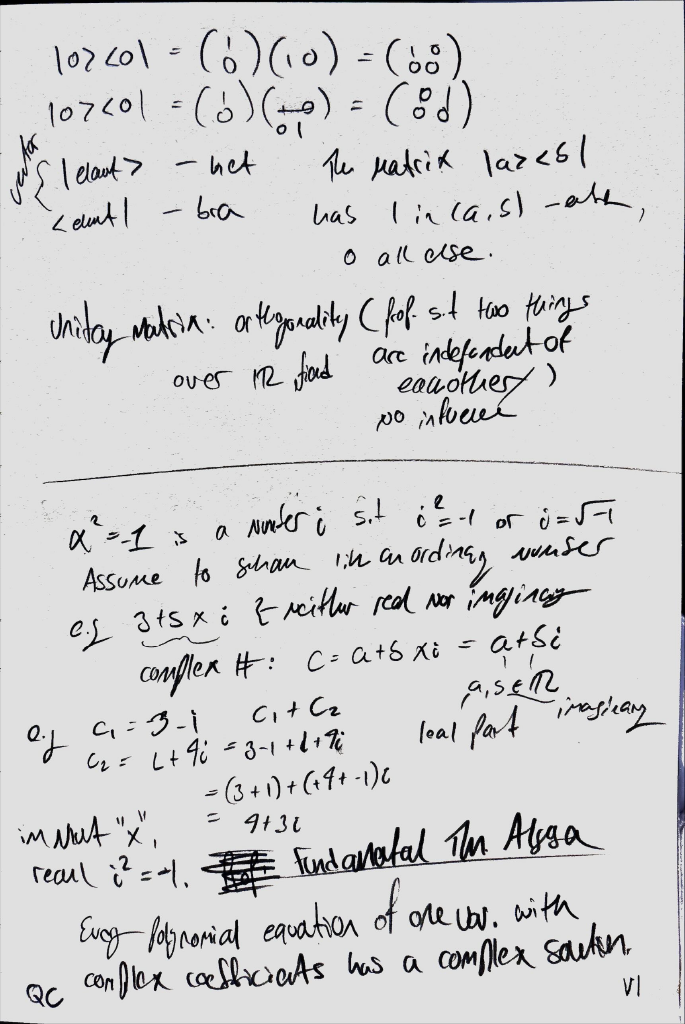 |0><0| = (1 0)(1 0) = (1 0 0 0)
|0><0| = (1 0)(0 1) = (0 0 0 1)
vector { |elemt> - ket
<elemt| - bra
The matrix |a><b|
has 1 in (a,b)
0 all else.
Unitary matrix: orthogonality (prop. s.t two things
over R field are independent of
each other)
No influence
x² = -1 is a number i s.t i² = -1 or i = √-1
Assume to behave like an ordinary number
e.g 3+5 x i neither real nor imaginary
complex #: C = a+b x i = a+bi
a, b ∈ R
real part imaginary
e.g c₁ = 3-i c₁ + c₂
c₂ = 1+4i = 3-i+1+4i
= (3+1)+(+4+-1)i
= 4+3i
in mult "x",
recall i² = -1. Fundamental Thm Algebra
Every polynomial equation of one var. with
complex coefficients has a complex solution.
QC VI